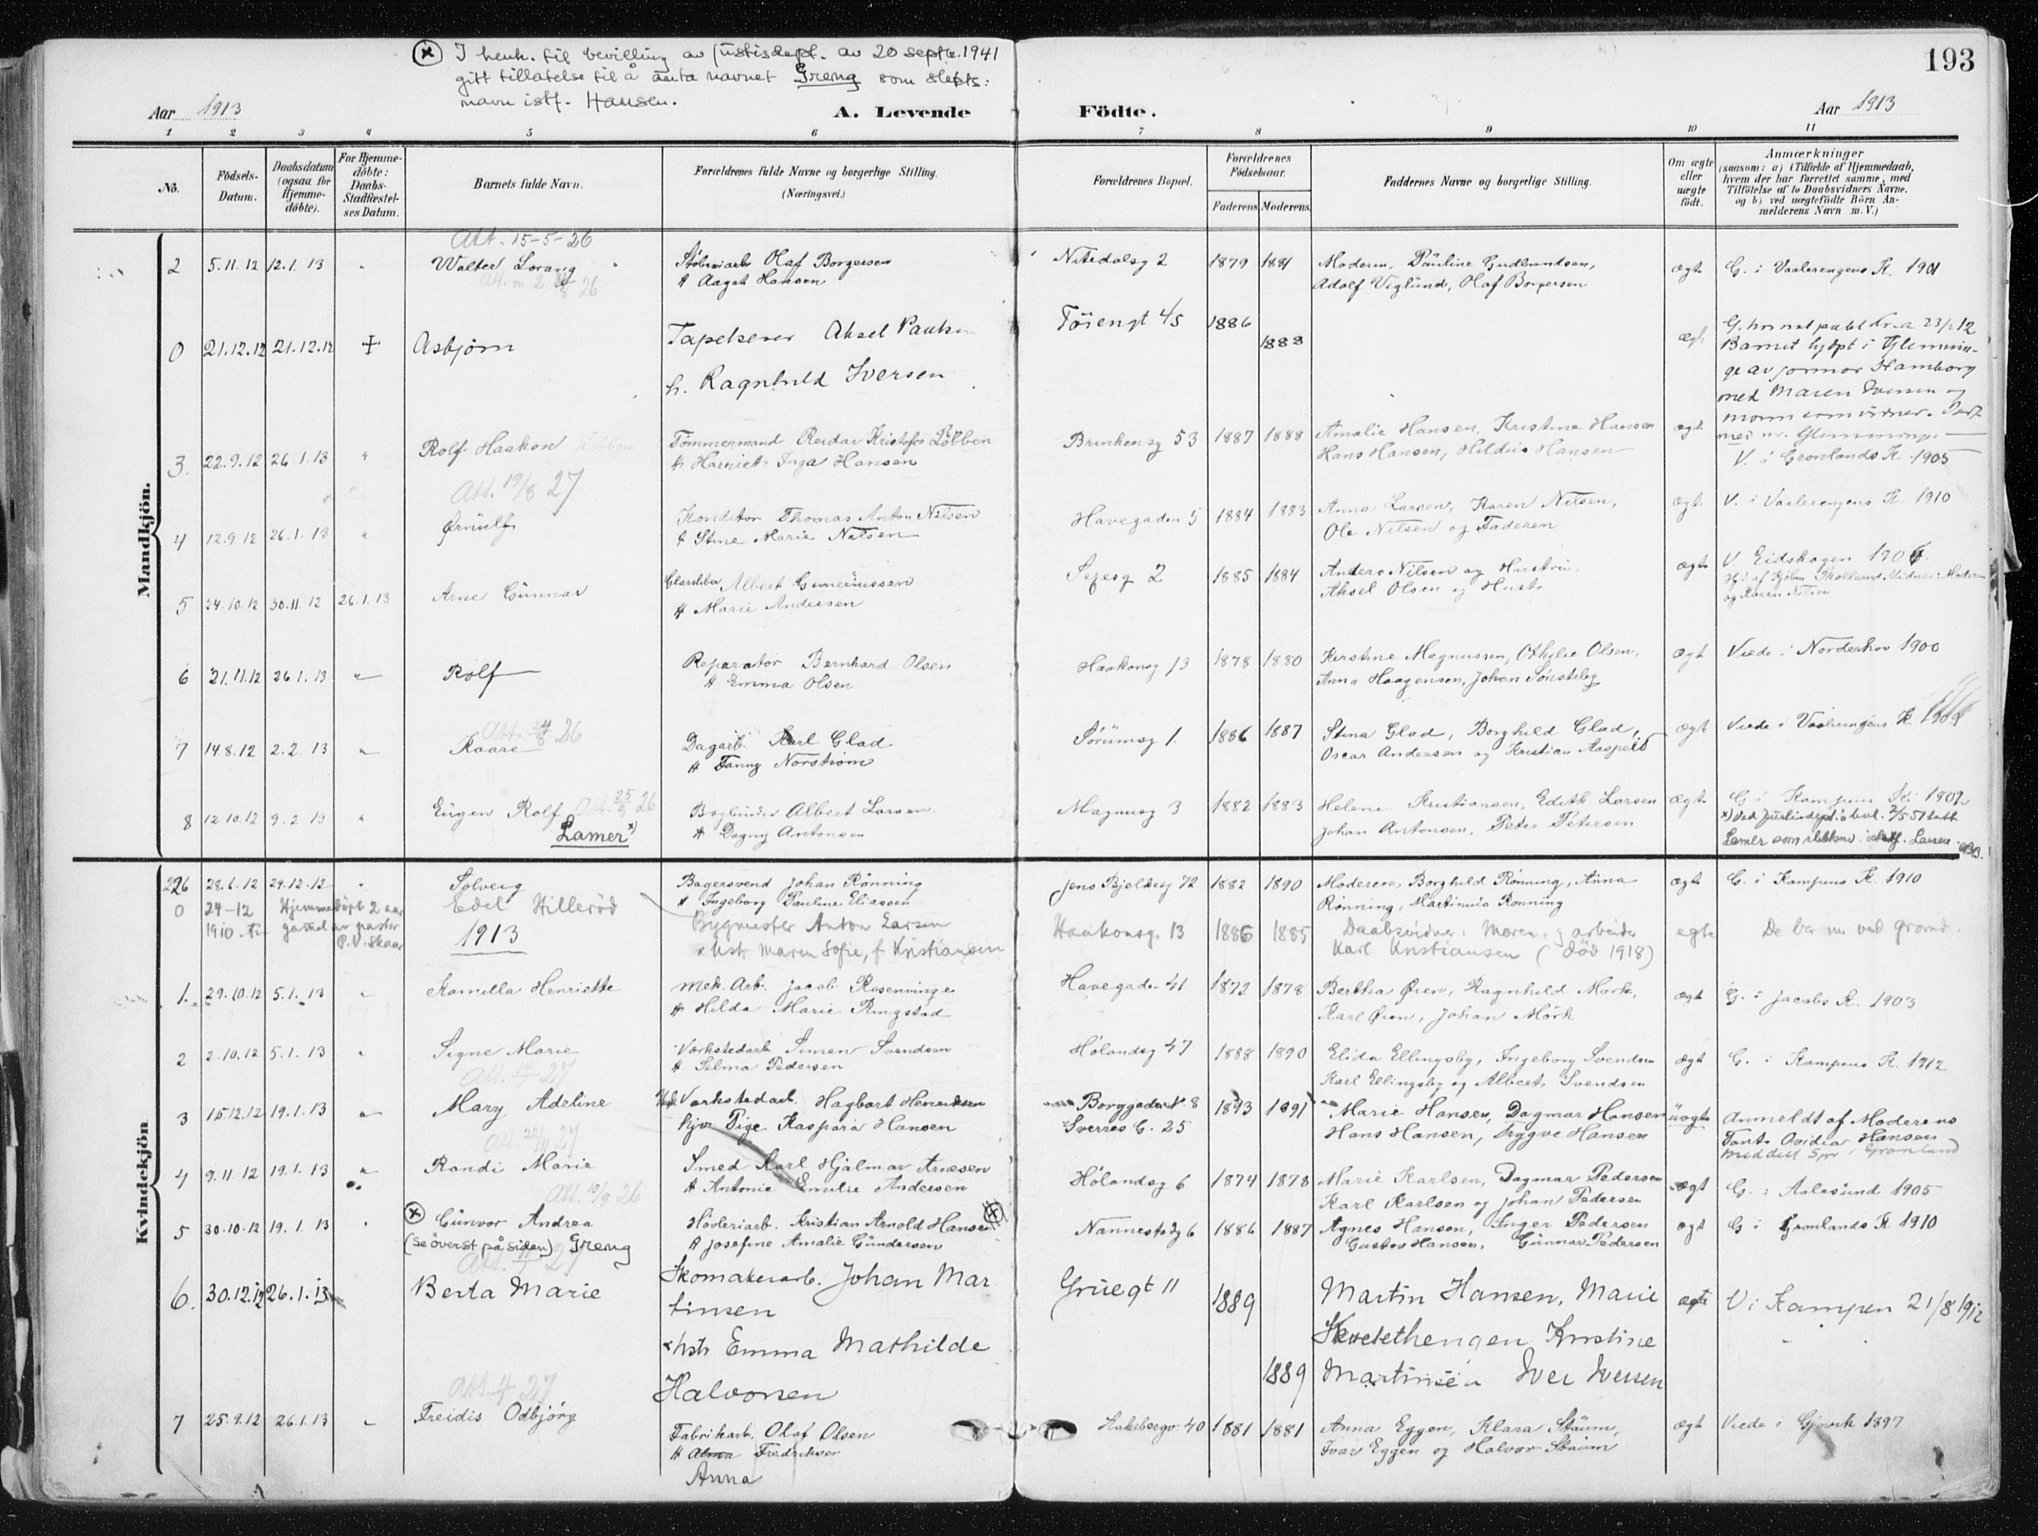 193
(×) I henh. til bevilling av justisdept. av 20 septbr. 1941
gitt tillatelse til å anta navnet Greng som slekts-
navn istf. Hansen.
Aar 1913
A. Levende Födte.
Aar 1913
1 2 3 4 5 6 7 8 9 10 11
No.
Födsels-Datum.
Daabsdatum (ogsaa for Hjemme-döbte).
For Hjemme-döbte: Daabs-Stadfæstel-ses Datum.
Barnets fulde Navn.
Forældrenes fulde Navne og borgerlige Stilling. (Næringsvei.)
Forældrenes Bopæl.
Forældrenes Födselsaar.
Faderens Moderens
Faddernes Navne og borgerlige Stilling.
Om ægte eller uægte födt.
Anmærkninger
(saasom: a) i Tilfælde af Hjemmedaab, hvem der har forrettet samme, med Tilföielse af to Daabsvidners Navne, og b) ved uægtefödte Börn An-melderens Navn m. V.)
Mandkjön.
Att. 15-5-26
2 5.11.12 12.1.13 " Walter Lorang Støberiarb. Olaf Borgersen Nitedalsg 2 1879 1881 Moderen, Pauline Gudbrandsen, ægt G. i Vaalerengens K. 1901
H Aagot Hansen Adolf Viglund, Olaf Borgersen
0 21.12.12 21.12.12 + Asbjørn Tapetserer Aksel Paulsen Töiengt 45 1886 1888 ægt
h. Ragnhild Iversen
Barnet i Glemmin-
ge av jormor Hamborg
med Maren Iversen og
3. 22.9.12 26.1.13 " Rolf Haakon Tømmermand Reidar Kristofer Løbben Brinkensg 53 1887 1888 Amalie Hansen, Kristina Hansen ægt
H Harriet Inga Hansen Hans Hansen, Hildus Hansen V. i Grønlands K. 1905
Att. 19/8 27
4 12.9.12 26.1.13 " Ørnulf Konditor Thomas Anton Nilsen Havegaden 5 1884 1883 Anna Larsen, Karen Nilsen, ægt V. i Vaalerengens K. 1910
H Stine Marie Nilsen Ole Nilsen og Faderen
5 24.10.12 30.11.12 26.1.13 Arne Gunnar Glassliber Albert Gunerussen 2 1885 1884 Anders Nilsen og Hustru, ægt V. Eidskogen 1906
H Marie Andersen Aksel Olsen og Hustr og Karen Nilsen
6 21.11.12 26.1.13 " Rolf Reparatør Bernhard Olsen Haakonsg 13 1878 1880 Kirstine Magnussen, Othilie Olsen, ægt Viede i Norderhov 1900
H Emma Olsen Anna Haagensen, Johan Sønsteby
7 14.8.12 2.2.13 " Kaare Dagarb. Karl Glad Sørumsg 1. 1886 1887 Stina Glad, Borghild Glad, ægt Viede i Vaalerengens K. 1909
H Fanny Norstrøm Oscar Andersen og Kristian Aaspelt
8 12.10.12 9.2.13 " Eugen Rolf Att. 25/8 26 Albert Larsen Magnusg 3 1882 1883 Helene Kristiansen, Edith Larsen ægt G. i Kampens K. 1902
Lamer x) H Dagny Antonsen Johan Antonsen, Peter Petersen
Lamer som istf. Larsen
Kvindekjön
226 28.6.12 29.12.12 " Solveig Bagersvend Johan Rønning Jens Bjelkesg 72 1882 1890 Moderen, Borghild Rønning, Anna ægt G. i Kampens K. 1910
H Ingeborg Pauline Eliassen Rønning, Martinius Rønning
0 24-12 1910 Hjemmedöpt 2 aar gamel av pastor P.V. Skaar Edel Hillerød Bygmester Anton Larsen Haakonsg. 13 1886 1885 Daabsvidner: Moren, og arbeider egte De bor nu ved grorud.
1913 Hustr Maren Sofie, f Kristiansen Karl Kristiansen (död 1918)
1. 29.10.12 5.1.13 " Kamilla Henriette Mek. Arb. Jacob Rosenvinge Havegaden 41 1872 1878 Bertha Øien, Ragnhild Mørk, ægt G. i Jacobs K. 1903
H Hilda Marie Ringstad Karl Øien, Johan Mörk
2 2.10.12 5.1.13 " Signe Marie Værkstedarb Simen Svendsen Hølandsg 47 1888 1890 Elida Ellingsby, Ingeborg Svendsen ægt G. i Kampens K. 1912
H Selma Pedersen Karl Ellingsby og Albert Svendsen
3 15.12.12 19.1.13 " Mary Adeline Værkstedarb. Hagbart Henriksen Borggaden 8 1893 1891 Marie Hansen, Dagmar Hansen uægte Anmeldt af Moderens
Pige Kaspara Hansen Sverres G. 25 Hans Hansen, Trygve Hansen Tante Ovidia Hansen
4 9.11.12 19.1.13 " Randi Marie Smed Karl Hjalmar Arnesen Hølandsg 6 1874 1878 Marie Karlsen, Dagmar Pedersen ægt G. i Aalesund 1905
Att. 10/9 26 H Antonie Emilie Andersen Karl Karlsen og Johan Pedersen
5 30.10.12 19.1.13 " (×) Gunvor Andrea Høvleriarb. Kristian Arnold Hansen (×) Nannestadg 6 1886 1887 Agnes Hansen, Inger Pedersen ægt G i Grønlands K 1910
(se överst på siden) Greng H Josefine Amalie Gundersen Gustav Hansen, Gunnar Pedersen
6. 30.12.12 26.1.13 Berta Marie Skomakerarb. Johan Mar Gruegt 11 1889 Martin Hansen, Marie ægte V i Kampen 21/8 1912
tinsen
hstr Emma Mathilde Kristine
Halvorsen 1889 Martinsen Iver Iversen
Att. 4/1 27
7 25.9.12 26.1.13 " Freidis Odbjørg Fabrikarb. Olaf Olsen Hakebergv 40 1881 1881 Anna Eggen, Klara Staum, ægt Viede i Gjøvik 1897
H Fredriksen Ivar Eggen og Halvor Staum
Anna